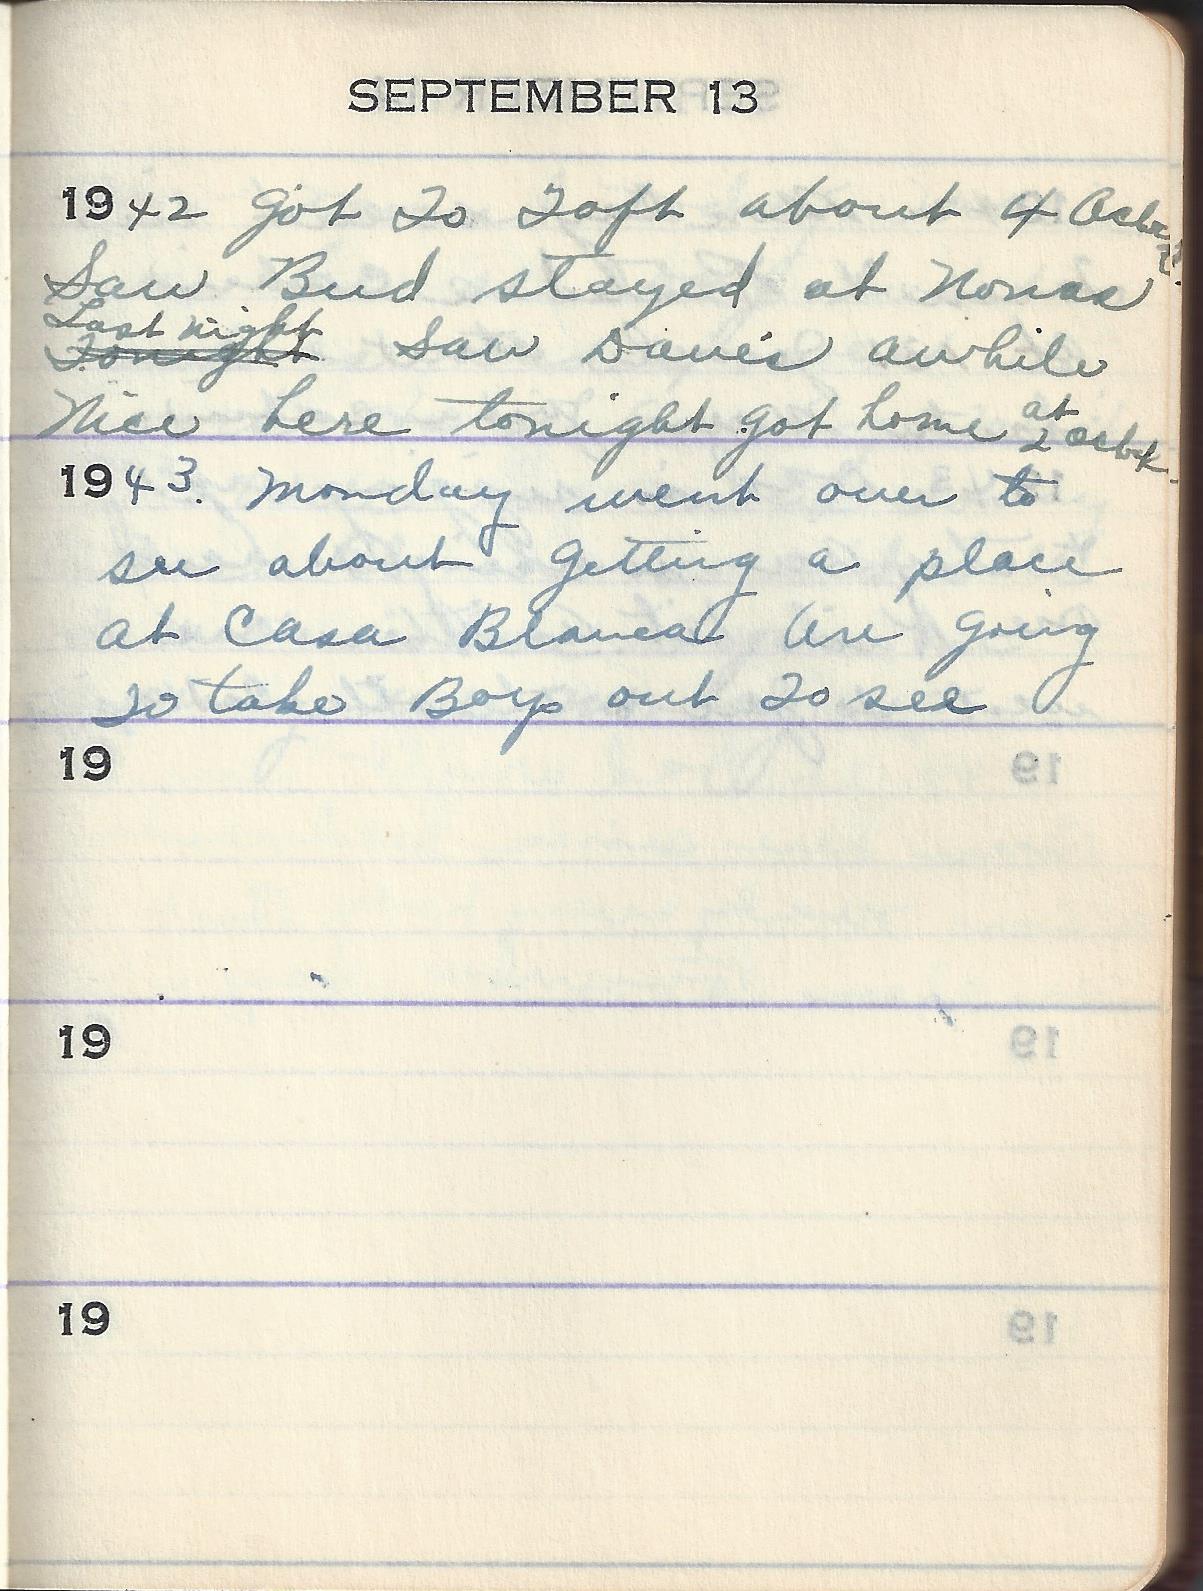 SEPTEMBER 13
1942 Got To Taft about 4 Oclock
Saw Bud stayed at Nonas
Last night
Tonight Saw Daves awhile
Nice here tonight got home at 2 oclock.
1943. Monday went over to
see about Getting a place
at Casa Blanca are going
To take Boys out To see
19
19
19